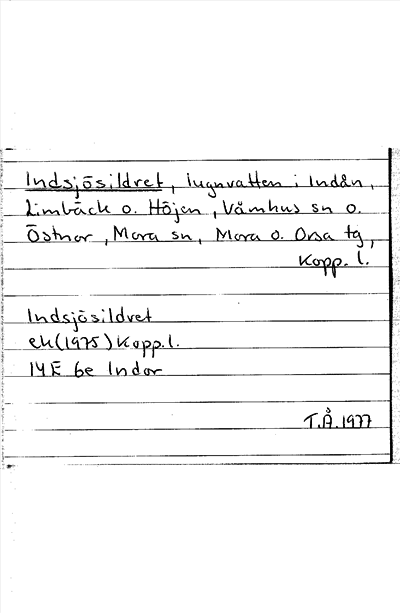 Indsjösildret, lugnvatten i Indån,
Limbäck o. Höjen, Våmhus sn o.
Östnor, Mora sn, Mora o. Orsa tg,
Kopp. l.
Indsjösildret
ek(1975) Kopp.l.
14E 6e Indor
T.Å.1977